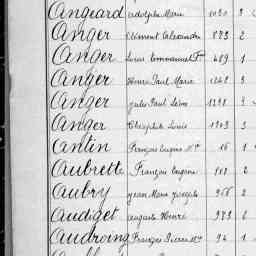 Angeard Adolphe Marie 1030 3
Anger Clément Alexandre 883 2
Anger Louis Emmanuel Fs 489 1
Anger Henri Paul Marie 1248 3
Anger Jules Paul Léon 1298 3
Anger Théophile Louis 1203 3
Antin François Eugène Mie 16 1
Aubrette François Eugène 2
Aubry Jean Marie Joseph 966 2
Audiget Auguste Henri 973 2
Audroing François Pierre Mie 94 1